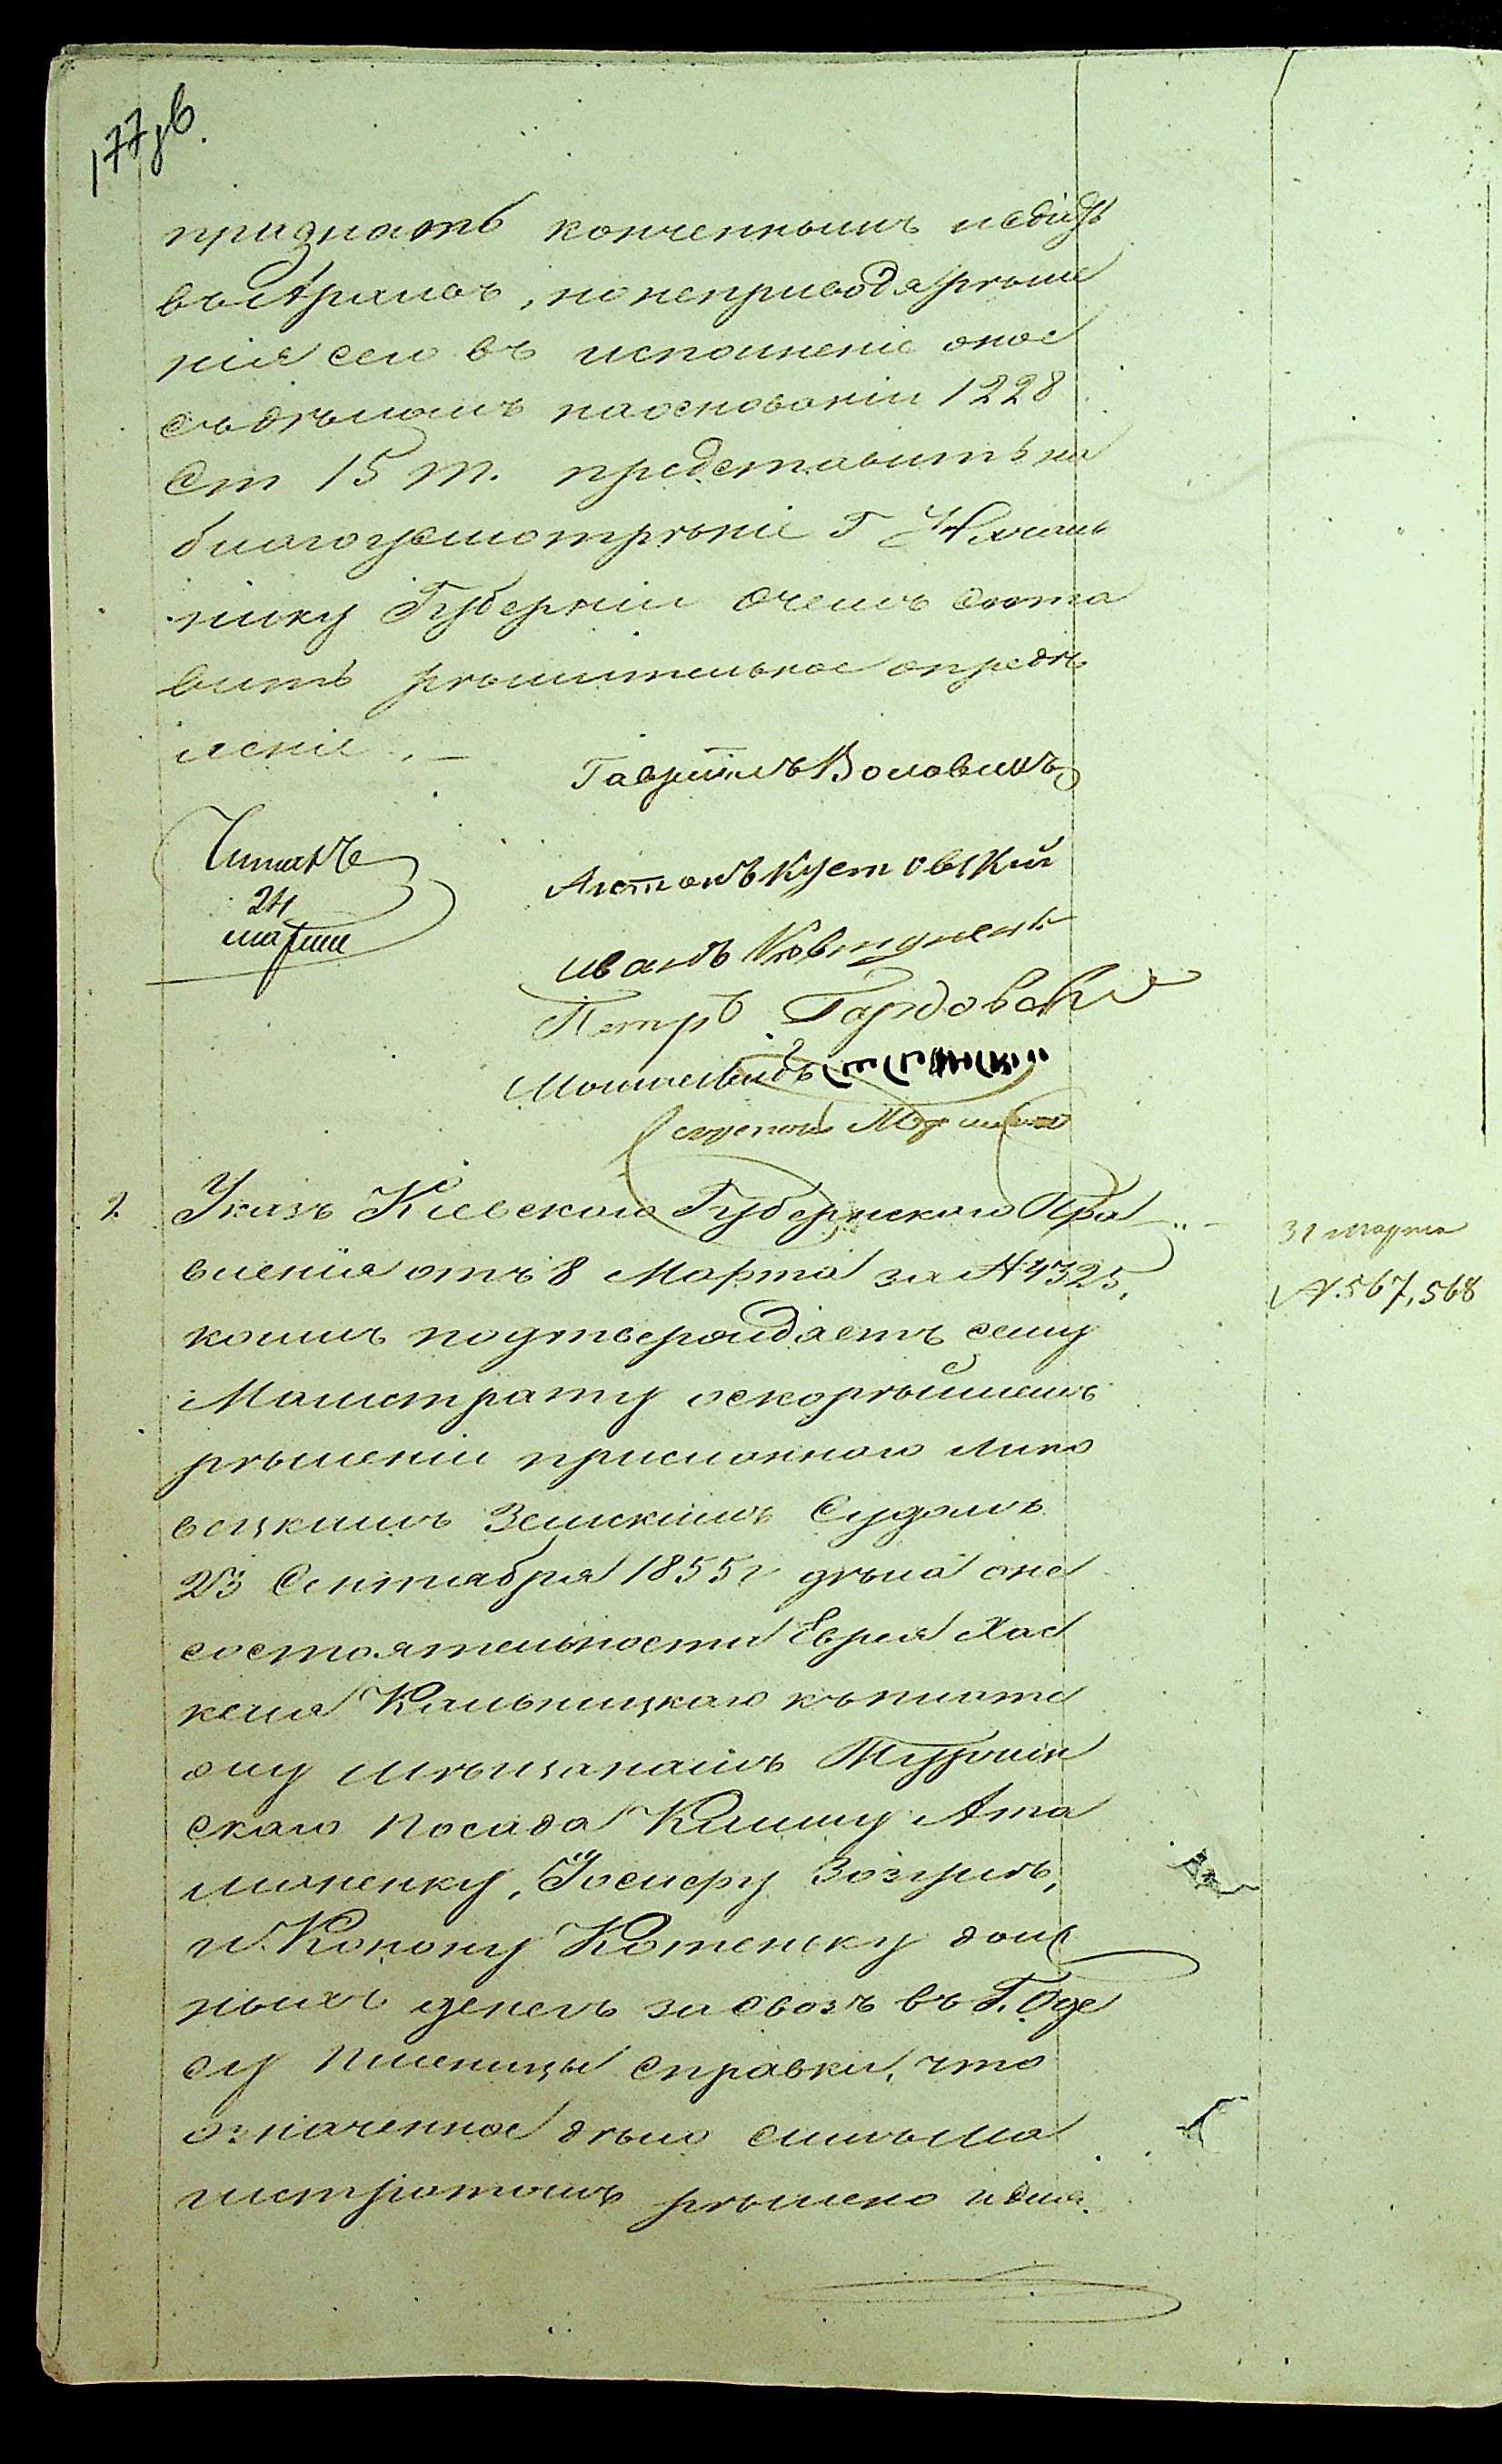 177 об.
признать конченнымъ и сдать
въ Архивъ, но неприводя рѣше
нія сего въ исполненіе оное
съ дѣломъ наоснованіи 1228
Ст 15 т. представить на
благоусмотрѣніе Г Началь
нику Губерніи о чемъ соста
вить рѣшительное опредѣ
леніе. —
Гавріилъ Воловикъ
Читалъ
24
марта
Антонъ Кустовскій
иванъ Ковтуненко
Петръ Гардовскій
2. Указъ Кіевскаго Губернскаго Пра
вленія отъ 8 Марта за № 4325,
31 марта
№. 567, 568
коимъ подтверждаетъ сему
Магистрату оскорѣйшемъ
рѣшеніи присланнаго Липо
вецкимъ Земскимъ Судомъ
23 Сентября 1855 г дѣла оне
состоятельности Еврея Хас
келя Кальницкаго къ плате
жу мѣщанамъ
скаго посада Климу Ата
маненку, Іосиферу Возгривъ,
и Конону Котенку долж
ныхъ денегъ за свозъ въ Г. Оде
су пшеницы справки, что
означенное дѣло симъ Ма
гистратомъ рѣшено и для